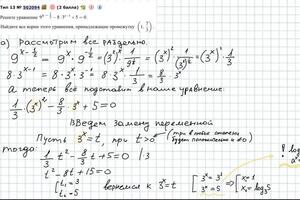 Тип 13 № 502094 (2 балла)
Решите уравнение 9^(x − 1/2) − 8 · 3^(x − 1) + 5 = 0.
Найдите все корни этого уравнения, принадлежащие промежутку
а) Рассмотрим все раздельно.
9^(x−1/2) = 9^x · 9^(−1/2) = (3²)^x · 1/9^(1/2) = (3^x)² · 1/(3²)^(1/2) = (3^x)² · 1/3
8·3^(x−1) = 8·3^x·3^(−1) = 8·3^x·1/3 = 8/3·3^x
А теперь всё подставим в наше уравнение:
1/3·(3^x)² − 8/3·3^x + 5 = 0
Введем замену переменной
Пусть 3^x = t, при t > 0 (три в любой степени
будет положительно и ≠ 0)
тогда: 1/3 t² − 8/3 t + 5 = 0 /·3
t² − 8t + 15 = 0
[t₁ = 3 t₂ = 5 вернемся к 3^x = t [3^x = 3¹ 3^x = 5 ⇒ [x₁ = 1 x₂ = log₃5